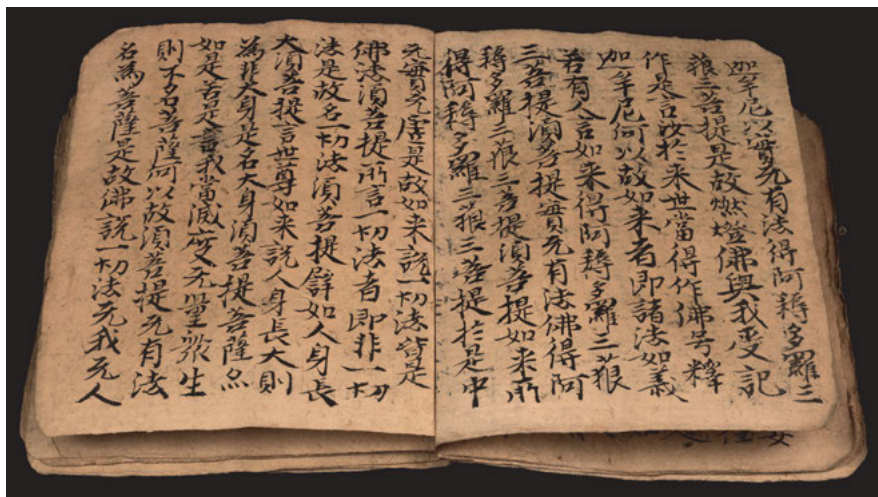 迦牟尼以實无有法得阿耨多羅三
藐三菩提是故燃燈佛與我受記
作是言汝於来世當得作佛号釋
迦牟尼何以故如来者即諸法如義
若有人言如来得阿耨多羅三藐
三菩提須菩提實无有法佛得阿
耨多羅三藐三菩提須菩提如来所
得阿耨多羅三藐三菩提於是中
无實无虛是故如来說一切法皆是
佛法須菩提所言一切法者即非一切
法是故名一切法須菩提譬如人身長
大須菩提言世尊如来說人身長大則
為非大身是名大身須菩提菩薩亦
如是若是言我當滅度无量眾生
則不名菩薩何以故須菩提无有法
名為菩薩是故佛說一切法无我无人